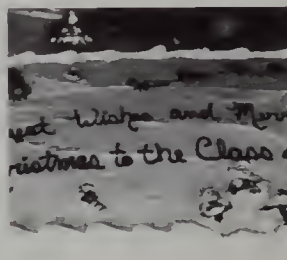 est Wishes and Mer
ristmas to the Class